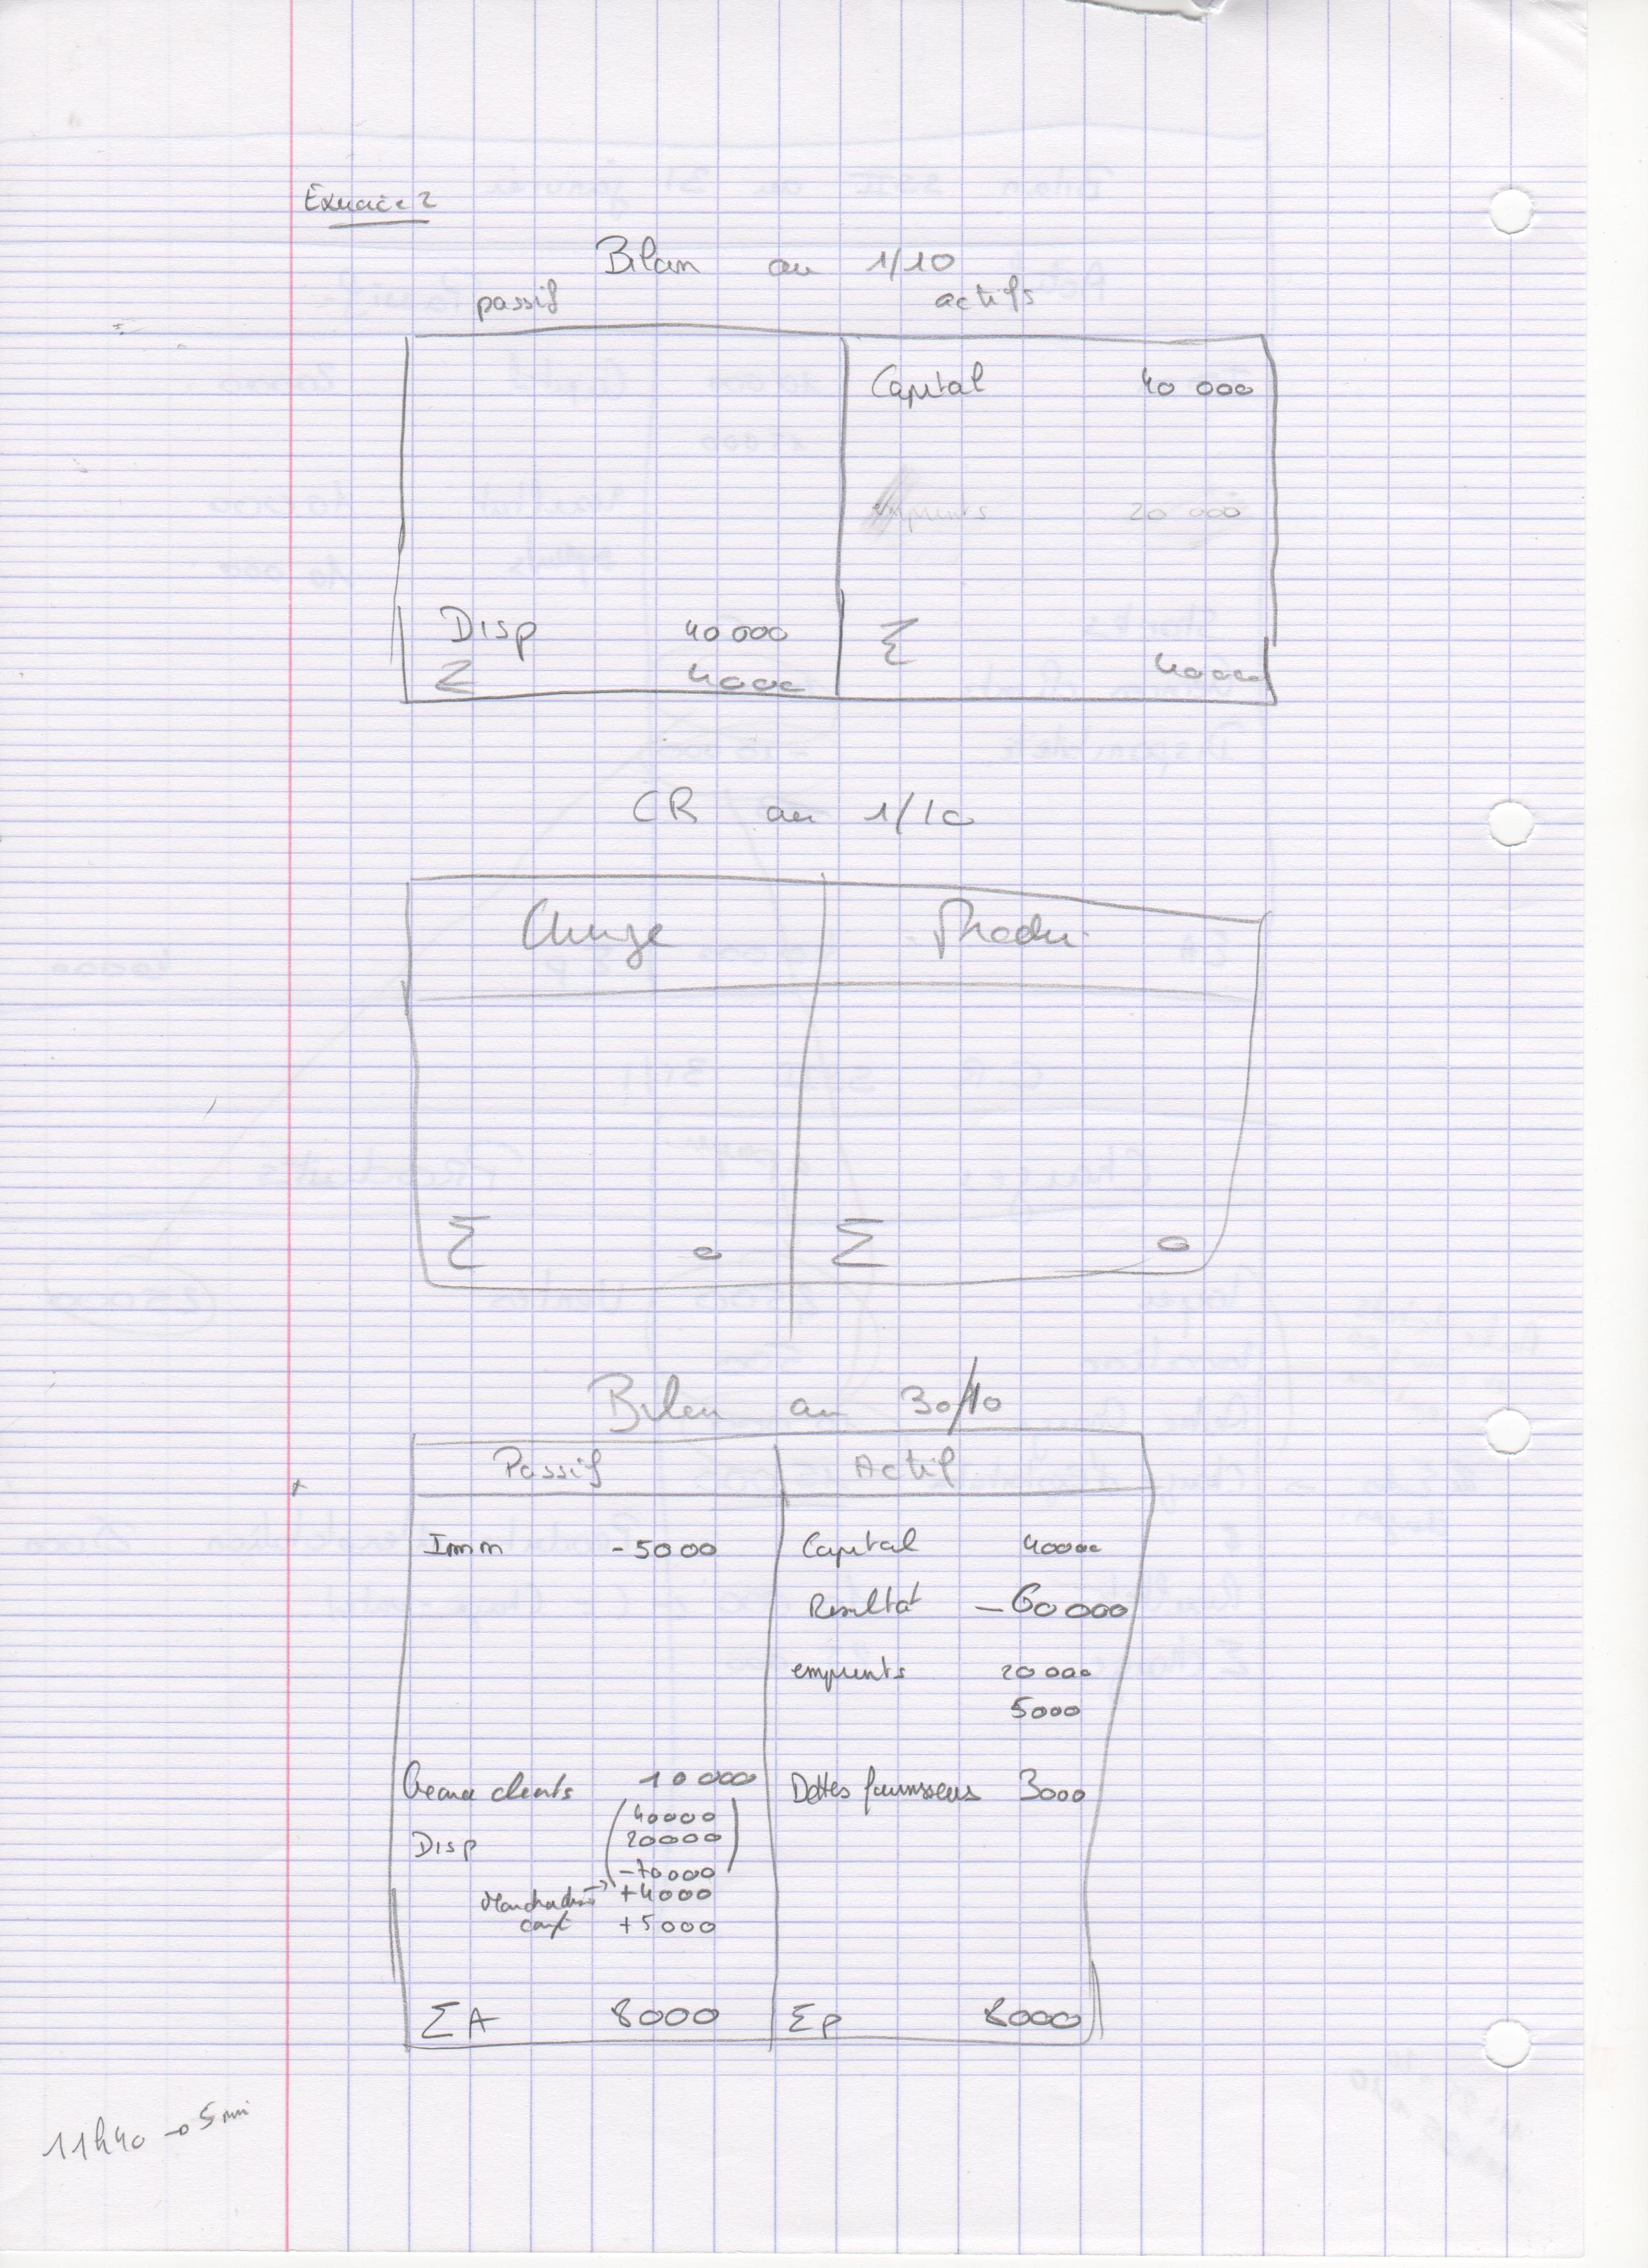 Exercice 2
Bilan au 1/10
passif actifs
Capital 40 000
emprunts 20 000
Disp 40 000 Σ
Σ 40000 40000
CR au 1/10
Charge Produi
Σ 0 Σ 0
Bilan au 30/10
Passif Actif
Imm - 5000 Capital 40000
Resultat - 60 000
emprunts 20 000
5000
clients 10 000 Dettes fournisseurs 3000
40000
Disp 20000
-70000
+4000
+5000
ΣA 8000 ΣP 8000
11h40 → 5 min